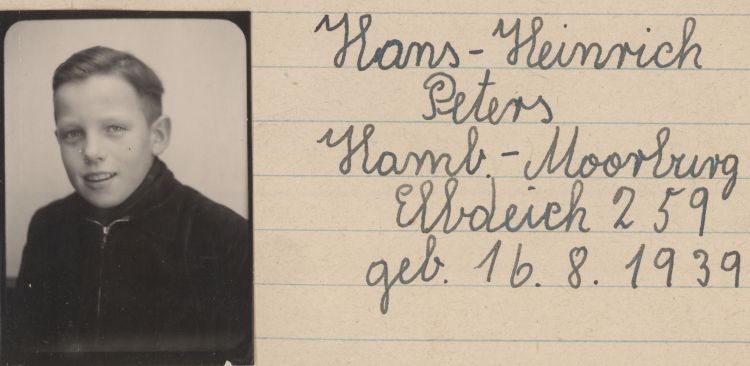 Hans-Heinrich
Peters
Hamb.-Moorburg
Elbdeich 259
geb. 16. 8. 1939